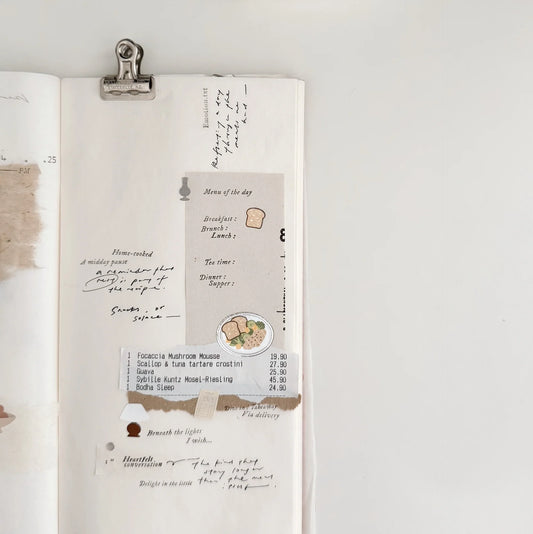 .25
PM
Emotion.txt
Reflecting a day
through the
meals we
had —
Menu of the day
Breakfast :
Brunch :
Lunch :
Tea time :
Dinner :
Supper :
Home-cooked
A midday pause
a reminder that
rest is part of
the recipe.
Snacks, or
solace —
1 Focaccia Mushroom Mousse 19.90
1 Scallop & tuna tartare crostini 27.90
1 Guava 25.90
1 Sybille Kuntz Mosel-Riesling 45.90
1 Bodha Sleep 24.90
Takeaway
Via delivery
Beneath the lights
I wish...
Heartfelt
conversation
The kind that
stay longer
than the meal
itself.
Delight in the little